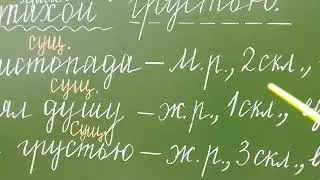 тихой грустью.
сущ.
истопада – м.р., 2 скл.,
сущ.
ял душу – ж.р., 1 скл.,
сущ.
грустью – ж.р., 3 скл., в